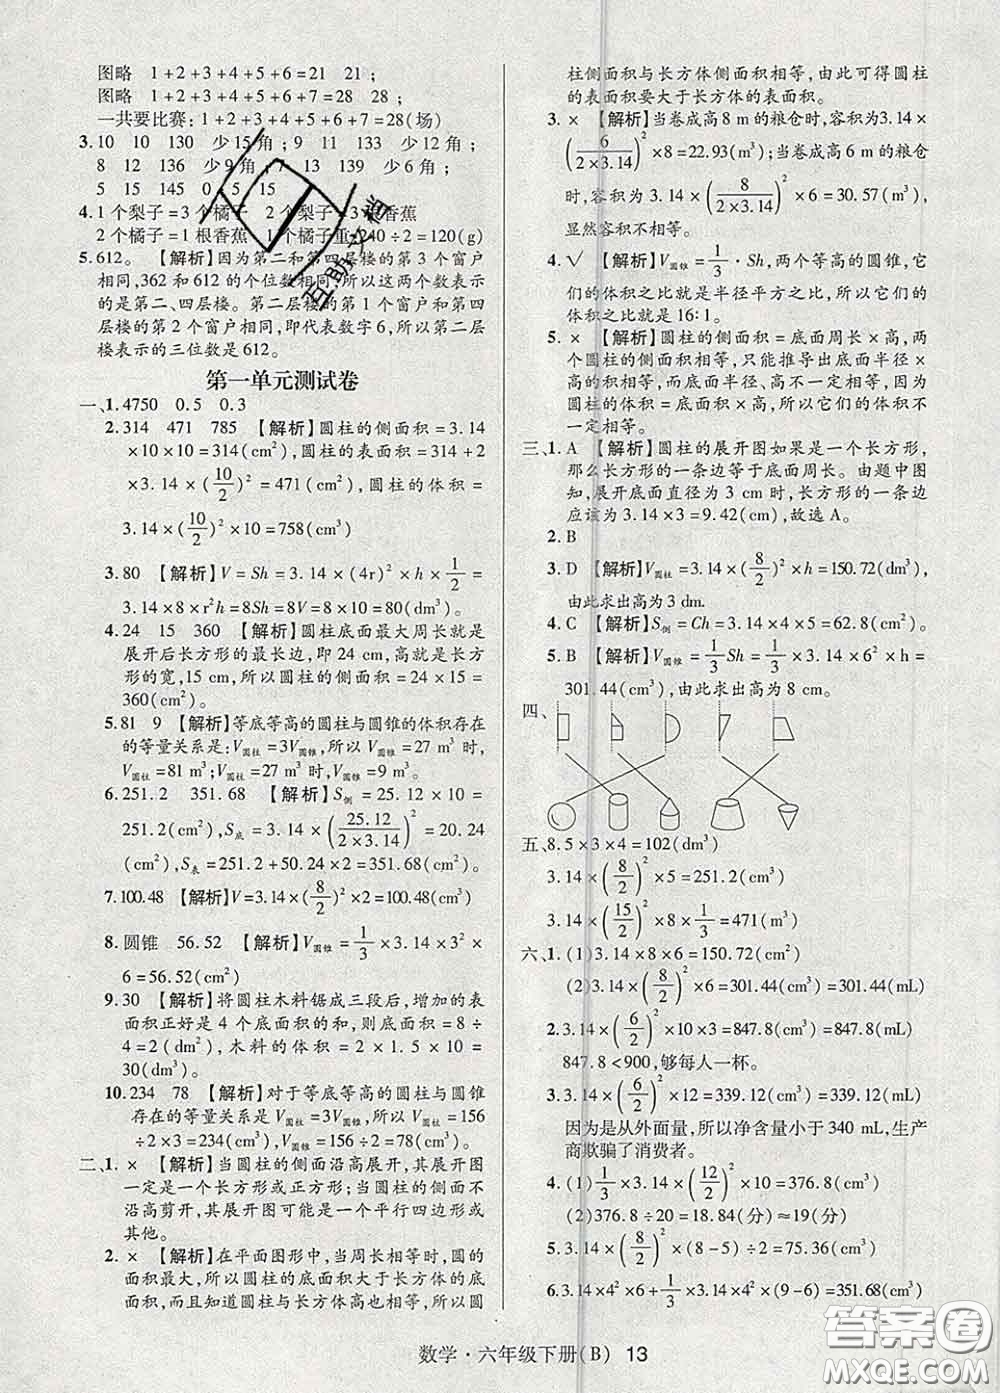 图略 1+2+3+4+5+6=21 21;
图略 1+2+3+4+5+6+7=28 28;
一共要比赛:1+2+3+4+5+6+7=28(场)
3.10 10 130 少15角;9 11 133 少12角;
8 12 136 少9角;7 13 139 少6角;
5 15 145 0 5 15
4.1个梨子=3个橘子 2个梨子=3根香蕉
2个橘子=1根香蕉 1个橘子重:240÷2=120(g)
5.612。【解析】因为第二和第四层楼的第3个窗户
相同,362和612的个位数相同,所以这两个数表示
的是第二、四层楼。第二层楼的第1个窗户和第四
层楼的第2个窗户相同,即代表数字6,所以第二层
楼表示的三位数是612。
第一单元测试卷
一、1.4750 0.5 0.3
2.314 471 785 【解析】圆柱的侧面积=3.14
×10×10=314(cm²),圆柱的表面积=314+2
×3.14×(10/2)²=471(cm²),圆柱的体积=
3.14×(10/2)²×10=758(cm³)
3.80 【解析】V=Sh=3.14×(4r)²×h×1/2=
3.14×8×r²h=8Sh=8V=8×10=80(dm³)。
4.24 15 360 【解析】圆柱底面最大周长就是
展开后长方形的最长边,即24 cm,高就是长方
形的宽,15 cm,所以圆柱的面积=24×15=
360(cm²)。
5.81 9 【解析】等底等高的圆柱与圆锥的体积存在
的等量关系是:V圆柱=3V圆锥,所以V圆锥=27 m³时,
V圆柱=81 m³;V圆柱=27 m³时,V圆锥=9 m³。
6.251.2 351.68 【解析】S侧=25.12×10=
251.2(cm²),S底=3.14×(25.12/2×3.14)²=20.24
(cm²),S表=251.2+50.24×2=351.68(cm²)。
7.100.48 【解析】V=3.14×(8/2)²×2=100.48(cm³)
8.圆锥 56.52 【解析】V圆锥=1/3×3.14×3²×
6=56.52(cm²)
9.30 【解析】将圆柱木料锯成三段后,增加的表
面积正好是4个底面积的和,则底面积=8÷
4=2(dm²),木料的体积=2×1.5×10=
30(dm³)。
10.234 78 【解析】对于等底等高的圆柱与圆锥
存在的等量关系是V圆柱=3V圆锥,所以V圆柱=156
÷2×3=234(cm³),V圆锥=156÷2=78(cm³)。
二、1.× 【解析】当圆柱的侧面沿高展开,其展开图
一定是一个长方形或正方形;当圆柱的侧面不
沿高剪开,其展开图可能是一个平行四边形或
其他。
2.× 【解析】在平面图形中,当周长相等时,圆的
面积最大,所以圆柱的底面积大于长方体的底
面积,而且知道圆柱与长方体高也相等,所以圆
柱侧面积与长方体侧面积相等,由此可得圆柱
的表面积要大于长方体的表面积。
3.× 【解析】当卷成高8 m的粮仓时,容积为3.14×
(6/2×3.14)²×8=22.93(m³);当卷成高6 m的粮仓
时,容积为3.14×(8/2×3.14)²×6=30.57(m³),
显然容积不相等。
4.√ 【解析】V圆锥=1/3·Sh,两个等高的圆锥,它
们的体积之比就是半径平方之比,所以它们的
体积之比就是16∶1。
5.× 【解析】圆柱的侧面积=底面周长×高,当
两个圆柱的侧面积相等,只能推导出底面半径×
高的积相等,而底面半径、高不一定相等,因为
圆柱的体积=底面积×高,所以它们的体积不
一定相等。
三、1.A 【解析】圆柱的展开图如果是一个长方形,
那么长方形的一条边等于底面周长。由题中图
知,展开底面直径为3 cm时,长方形的一条边
应该为3.14×3=9.42(cm),故选A。
2.B
3.D 【解析】V圆柱=3.14×(8/2)²×h=150.72(dm³),
由此求出高为3 dm.
4.C 【解析】S侧=Ch=3.14×4×5=62.8(cm²)。
5.B 【解析】V圆锥=1/3Sh=1/3×3.14×6²×h=
301.44(cm³),由此求出高为8 cm。
四、
五、8.5×3×4=102(dm³)
3.14×(8/2)²×5=251.2(m³)
3.14×(15/2)²×8×1/3=471(m³)
六、1.(1)3.14×8×6=150.72(cm²)
(2)3.14×(8/2)²×6=301.44(cm³)=301.44(mL)
2.3.14×(6/2)²×10×3=847.8(cm³)=847.8(mL)
847.8<900,够每人一杯。
3.3.14×(6/2)²×12=339.12(cm³)=339.12(mL)
因为是从外面量,所以净含量小于340 mL,生产
商欺骗了消费者。
4.(1)1/3×3.14×(12/2)²×10=376.8(cm³)
(2)376.8÷20=18.84(分)≈19(分)
5.3.14×(8/2)²×(8-5)÷2=75.36(cm³)
6.3.14×4²×6+1/3×3.14×4²×(9-6)=351.68(cm³)
数学·六年级下册(B) 13
互助文档
答案圈
MXQE.COM